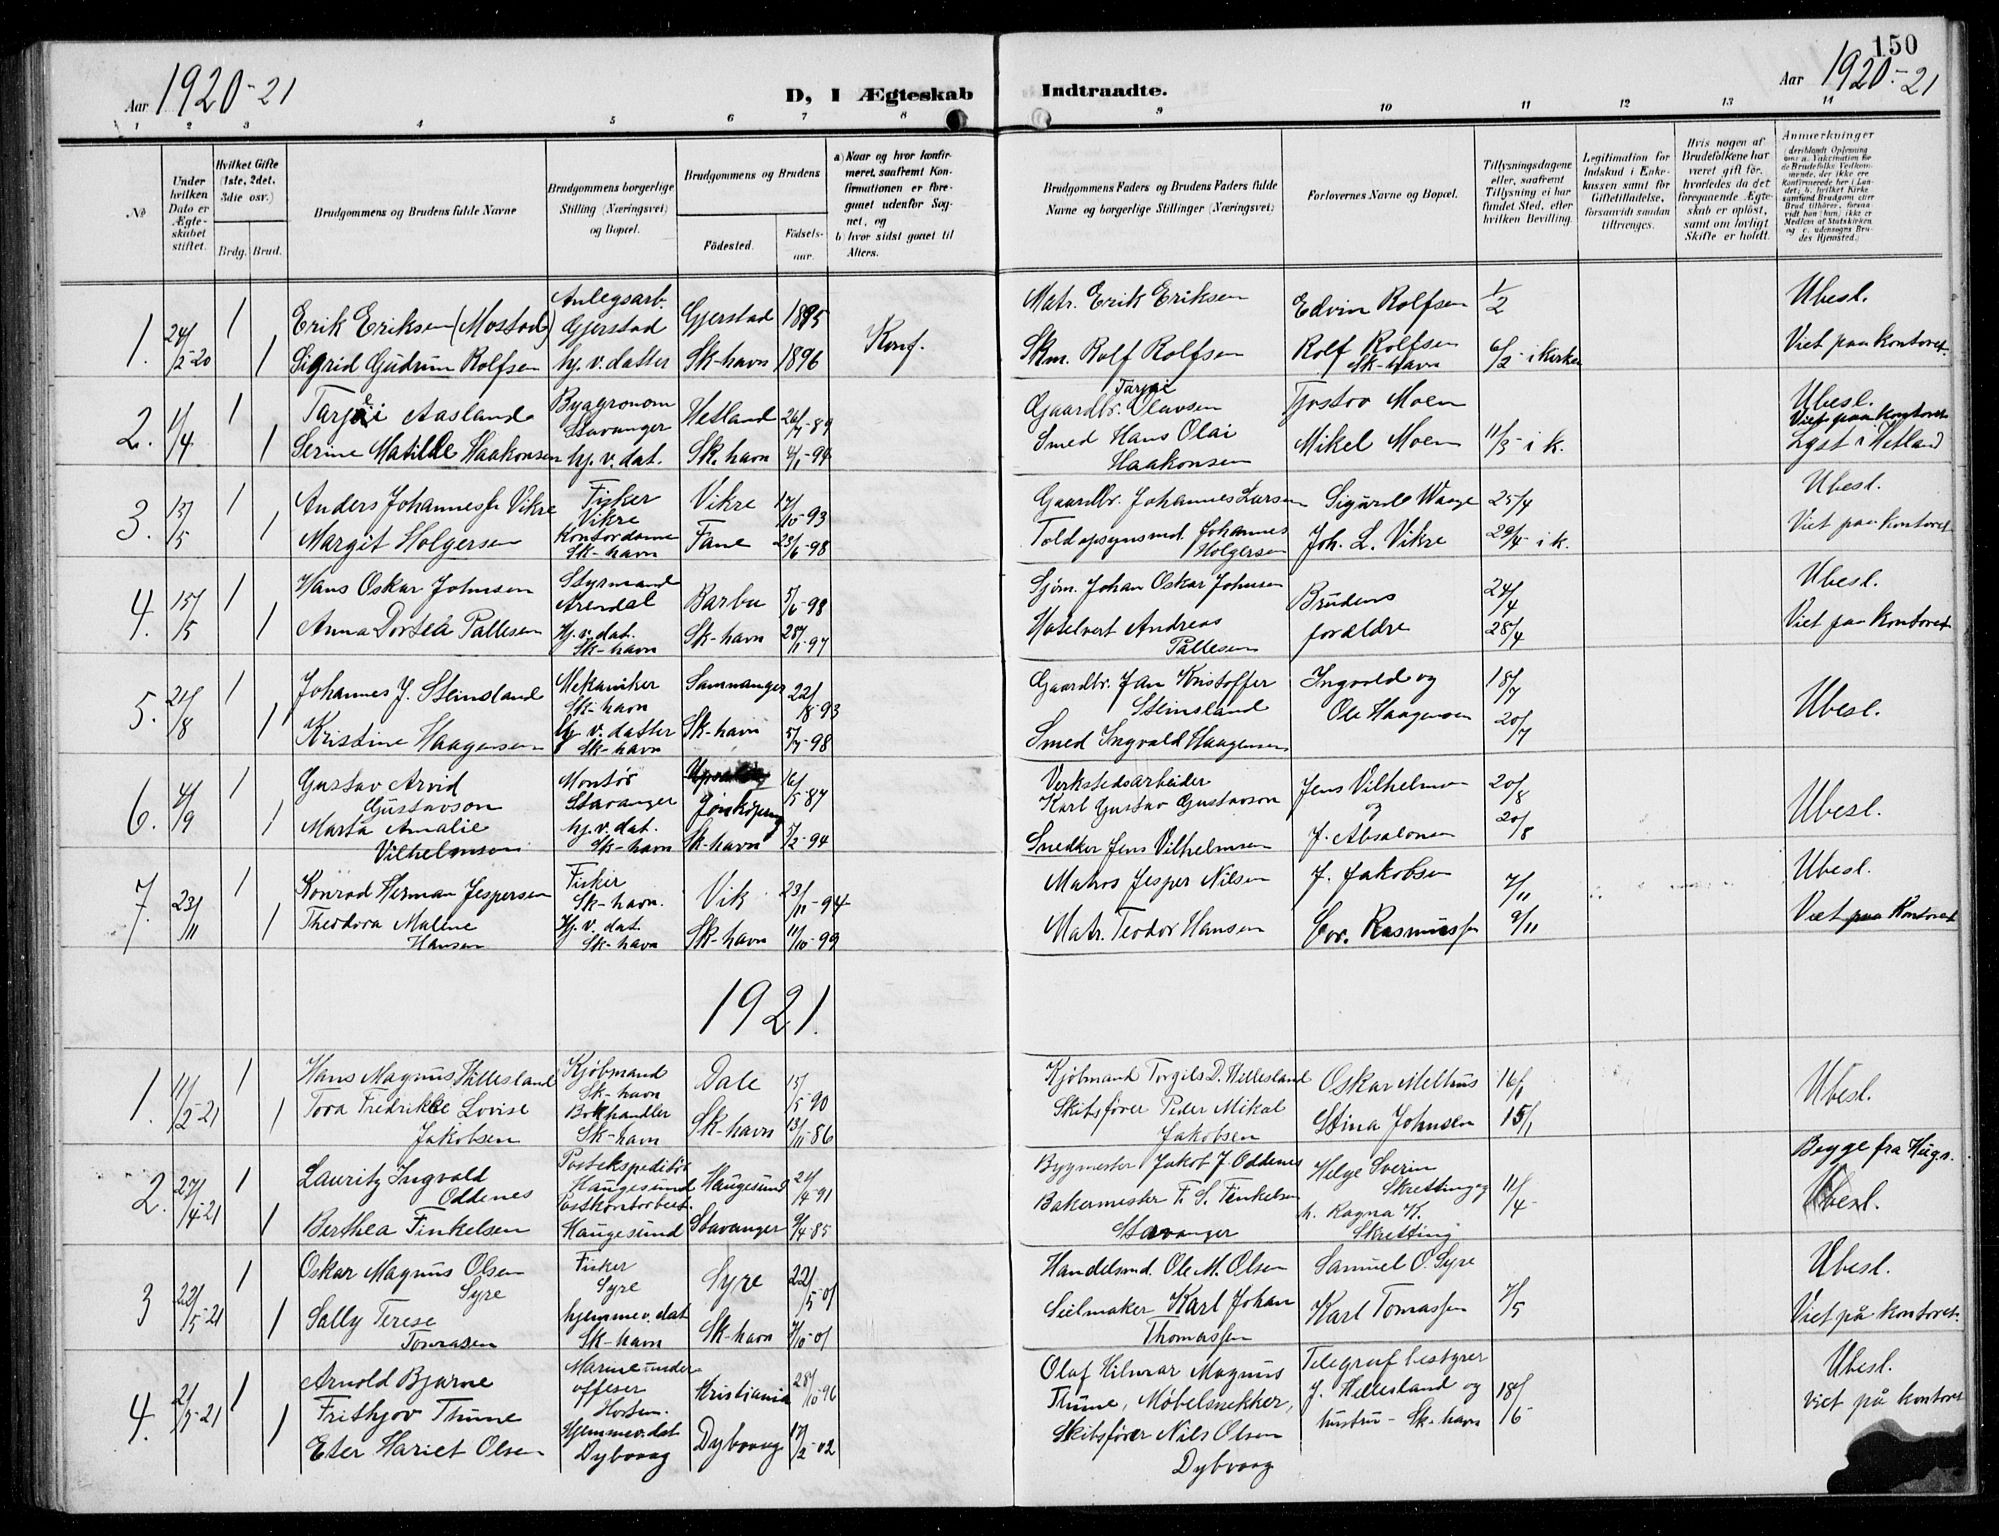 150
Aar 1920-21
D, I Ægteskab Indtraadte.
Aar 1920-21
1 2 3 4 5 6 7 8 9 10 11 12 13 14
No
Under hvilken Dato er Ægteskabet stiftet.
Hvilket Gifte (1ste, 2det, 3die osv.)
Brdg. Brud.
Brudgommens og Brudens fulde Navne
Brudgommens borgerlige Stilling (Næringsvei) og Bopæl.
Brudgommens og Brudens
Födested. Födselsaar.
a) Naar og hvor konfirmeret, saafremt Konfirmationen er foregaaet udenfor Sognet, og
b) hvor sidst gaaet til Alters.
Brudgommens Faders og Brudens Faders fulde Navne og borgerlige Stillinger (Næringsvei)
Forlovernes Navne og Bopæl.
Tillysningsdagene eller, saafremt Tillysning ei har fundet Sted, efter hvilken Bevilling.
Legitimation for Indskud i Enkekassen samt for Giftetilladelse, forsaavidt saadan tiltrænges.
Hvis nogen af Brudefolkene har været gift før, hvorledes da det foregaaende Ægteskab er opløst, samt om lovligt Skifte er holdt.
Anmærkninger
1. 24/2-20 1 Erik Eriksen (Mostad) Anlegsarb. Gjerstad Gjerstad 1895 Konf. Matr. Erik Eriksen Edvin Rolfsen 1/2 Ubesl.
1 Sigrid Gudrun Rolfsen hj. v. datter Sk-havn 1896 Skm. Rolf Rolfsen Rolf Rolfsen Sk-havn 6/2 - i kirken Viet paa kontoret.
2. 11/4 1 Tarjei Aasland Byagronom Stavanger Hetland 26/7-89 Gaardbr. Tarjei Olavsen Tjostov Moen Ubesl. Viet paa kontoret
1 Serine Matilde Haakonsen hj. v. dat. Sk. havn 4/1-94 Smed Hans Olai Haakonsen Mikel Moen 11/3 - i k. Lyst i Hetland
3. 13/5 1 Anders Johannessen Vikre Fisker Vikre Vikre 17/10-93 Gaardbr. Johannes Larsen Sigurd Waage 25/4 Ubesl.
1 Margit Holgersen Kontordame Sk-havn Fane 23/6-98 Toldopsynsmd. Johannes Holgersen Joh. L. Vikre 29/4 - i k. Viet paa kontoret
4. 15/5 1 Hans Oskar Johnsen Styrmand Arendal Barbu 5/6-98 Sjøm. Johan Oskar Johnsen Brudens 24/4 Ubesl.
1 Anna Dortea Pallesen Hj. v. dat. Sk-havn Sk-havn 28/11-97 Hotelvert Andreas Pallesen forældre 28/4 Viet paa kontoret
5. 21/8 1 Johannes J. Steinsland Mekaniker Sk-havn Samnanger 22/8-93 Gaardbr. Jan Kristoffer Steinsland Ingvald og 18/7 Ubesl.
1 Kristine Haagensen hj. v. datter Sk-havn Sk-havn 5/7-98 Smed Ingvald Haagensen Ole Haagensen 20/7
6. 4/9 1 Gustav Arvid Gustavson Montør Stavanger Jönköping 16/5-87 Verkstedsarbeider Karl Gustav Gustavson Jens Vilhelmsen 20/8 Ubesl.
1 Marta Amalie Vilhelmsen hj. v. dat. Sk-havn Sk-havn 5/2-94 Snedker Jens Vilhelmsen og J. Absalonsen 20/8
7. 23/11 1 Konrad Herman Jespersen Fisker Sk-havn. Vik 23/11-94 Matros Jesper Nilsen J. Jakobsen 7/11 Ubesl.
1 Theodora Malene Hansen Hj. v. dat. Sk-havn Sk-havn 11/10-99 Matr. Teodor Hansen Rasmussen 9/11 Viet paa Kontoret
1921.
1. 11/2-21 1 Hans Magnus Hillesland Kjøbmand Sk-havn Dale 15/5-90 Kjøbmand Torgils D. Hillesland Oskar Melhus 16/1 Ubesl.
1 Tora Fredrikke Lovise Jakobsen Bokhandler Sk-havn Sk-havn 13/11-86 Skibsfører Peder Mikal Jakobsen Stina Johnsen 15/1
2. 27/4-21 1 Lauritz Ingvald Oddenes Postekspeditør Haugesund Haugesund 20/4-91 Bygmester Jakob J. Oddenes Helge Sverin Skretting og 11/4 Begge fra Hugs.
1 Berthea Finkelsen Postkontorbest. Haugesund Stavanger 9/4-85 Bakermester F. S. Finkelsen Stavanger h. Ragna Skretting Ubesl.
3 22/5-21 1 Oskar Magnus Olsen Syre Fisker Syre Syre 22/5-01 Handelsmd. Ole M. Olsen Samuel O. Syre Ubesl.
1 Sally Terese Tomasen hjemmev. dat Sk-havn Sk-havn 7/10-01 Seilmaker Karl Johan Thomassen Karl Tomassen 7/5 Viet på kontoret.
4. 2/7-21 1 Arnold Bjarne Frithjov Thune Marineunderoffeser Horten Kristiania 28/10-96 Olaf Hilmar Magnus Thune, Møbelsnekker, Telegrafbestyrer J. Hillesland og 18/6 Ubesl.
1 Ester Hariet Olsen Hjemmev. dat Dybvaag Dybvaag 17/2-02 Skibsfører Nils Olsen Dybvaag hustru - Sk-havn viet på kontoret